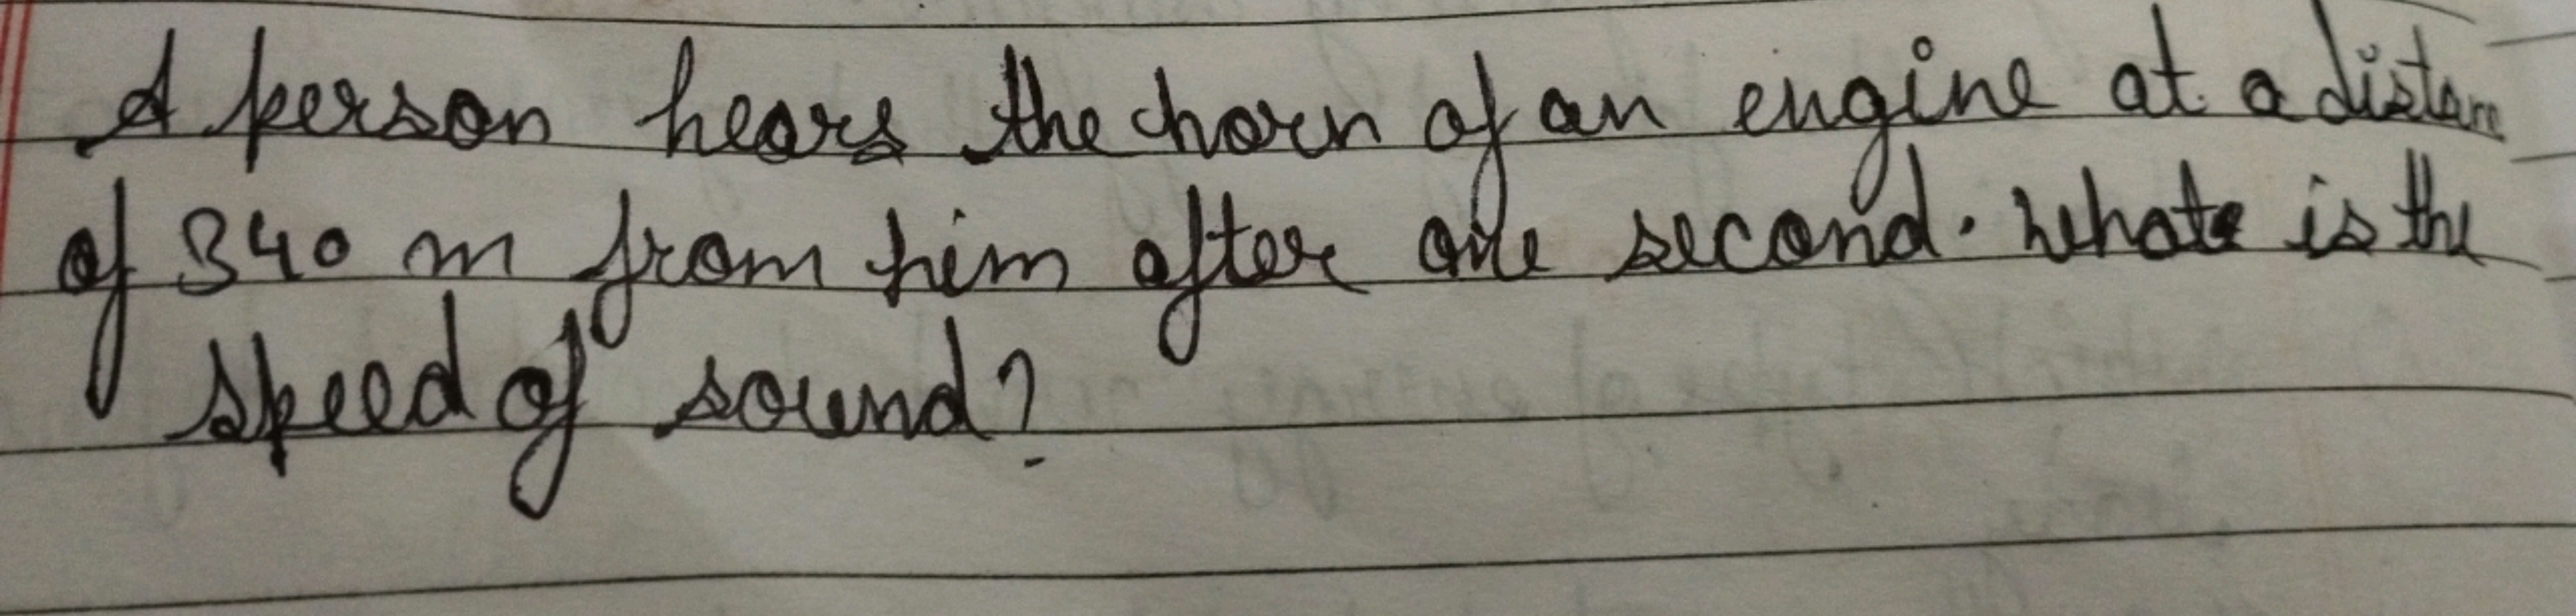 A person hears the horn of an engine at a distan
of 340 m from him after one second. What is the
speed of sound?